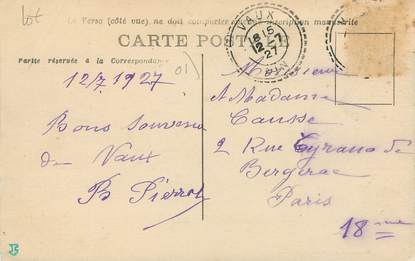 Lot
Le Verso (côté vue), ne doit comporter inscription manuscrite
CARTE POSTALE
Partie réservée à la Correspondance
VAUX
8 15
12-7
27
AIN
01)
12/7 1927
Bons souvenirs
de Vaux
Ph Pierrot
Monsieur
et Madame
Causse
2 Rue Cyrano de
Bergerac
Paris
18 ième